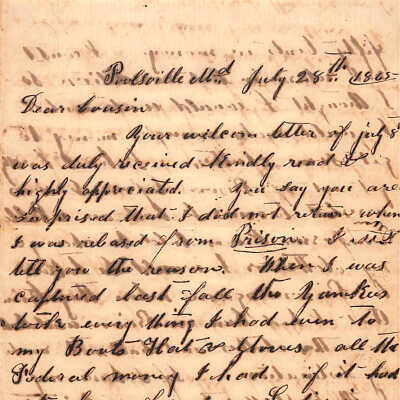 Poolsville Md July 28th 1865
Dear Cousin
Your wilcom letter of july 8
was duly recieved kindly read &
highly appreciated. You say you are
surprised that I did not return when
I was released from Prison. I will
tell you the reason. When I was
captured last fall the Yankees
took every thing I had even to
my Boots Hat & Gloves all the
Federal money I had if it had